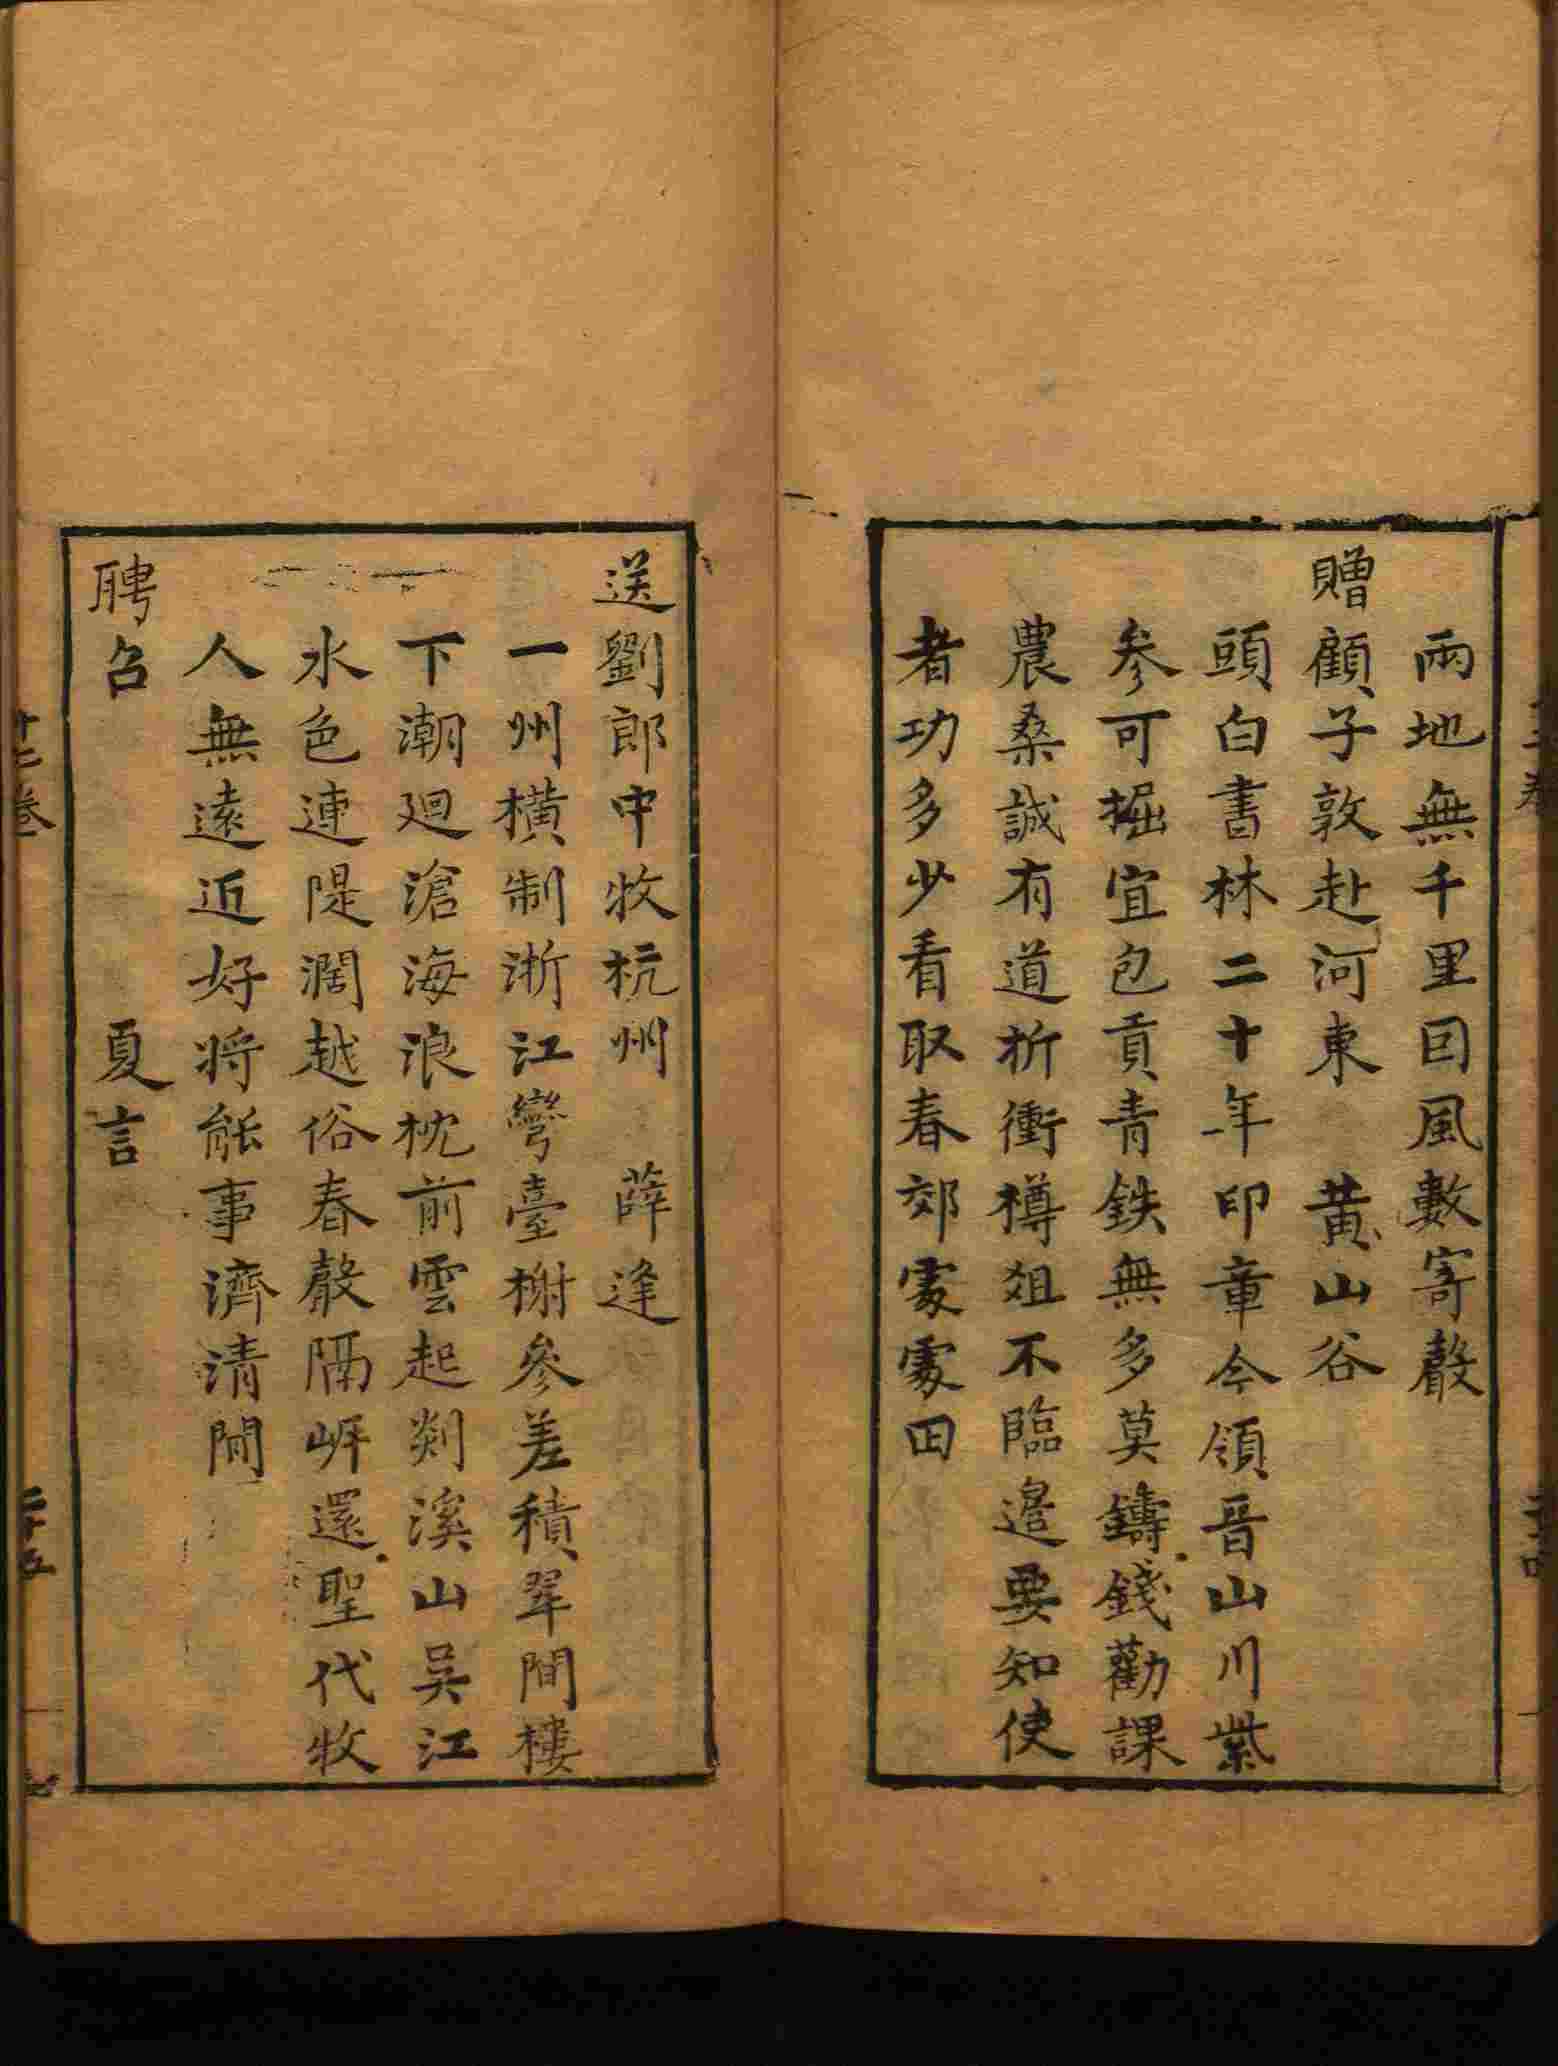 兩地無千里回風數寄聲
贈顧子敦赴河東 黄山谷
頭白書林二十年印章今領晉山川紫
参可掘宜包貢青鉄無多莫鑄錢勸課
農桑誠有道折衝樽爼不臨邉要知使
者功多少看取春郊䖏䖏田
送劉郎中牧杭州 薛逢
一州横制浙江彎臺榭參差積翠間樓
下潮廻滄海浪枕前雲起剡溪山吴江
水色連隄濶越俗春聲隔岸還聖代牧
人無遠近好將能事濟清閒
聘召 夏言
十二卷
二十五